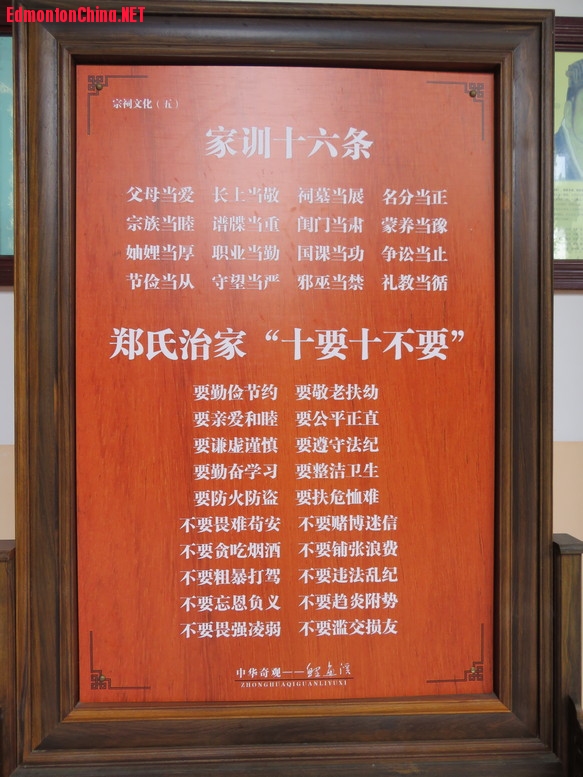 EdmontonChina.NET
宗祠文化（五）
家训十六条
父母当爱 长上当敬 祠墓当展 名分当正
宗族当睦 谱牒当重 闺门当肃 蒙养当豫
姻娌当厚 职业当勤 国课当功 争讼当止
节俭当从 守望当严 邪巫当禁 礼教当循
郑氏治家“十要十不要”
要勤俭节约 要敬老扶幼
要亲爱和睦 要公平正直
要谦虚谨慎 要遵守法纪
要勤奋学习 要整洁卫生
要防火防盗 要扶危恤难
不要畏难苟安 不要赌博迷信
不要贪吃烟酒 不要铺张浪费
不要粗暴打驾 不要违法乱纪
不要忘恩负义 不要趋炎附势
不要畏强凌弱 不要滥交损友
中华奇观——
ZHONGHUAQIGUANLIYUXI